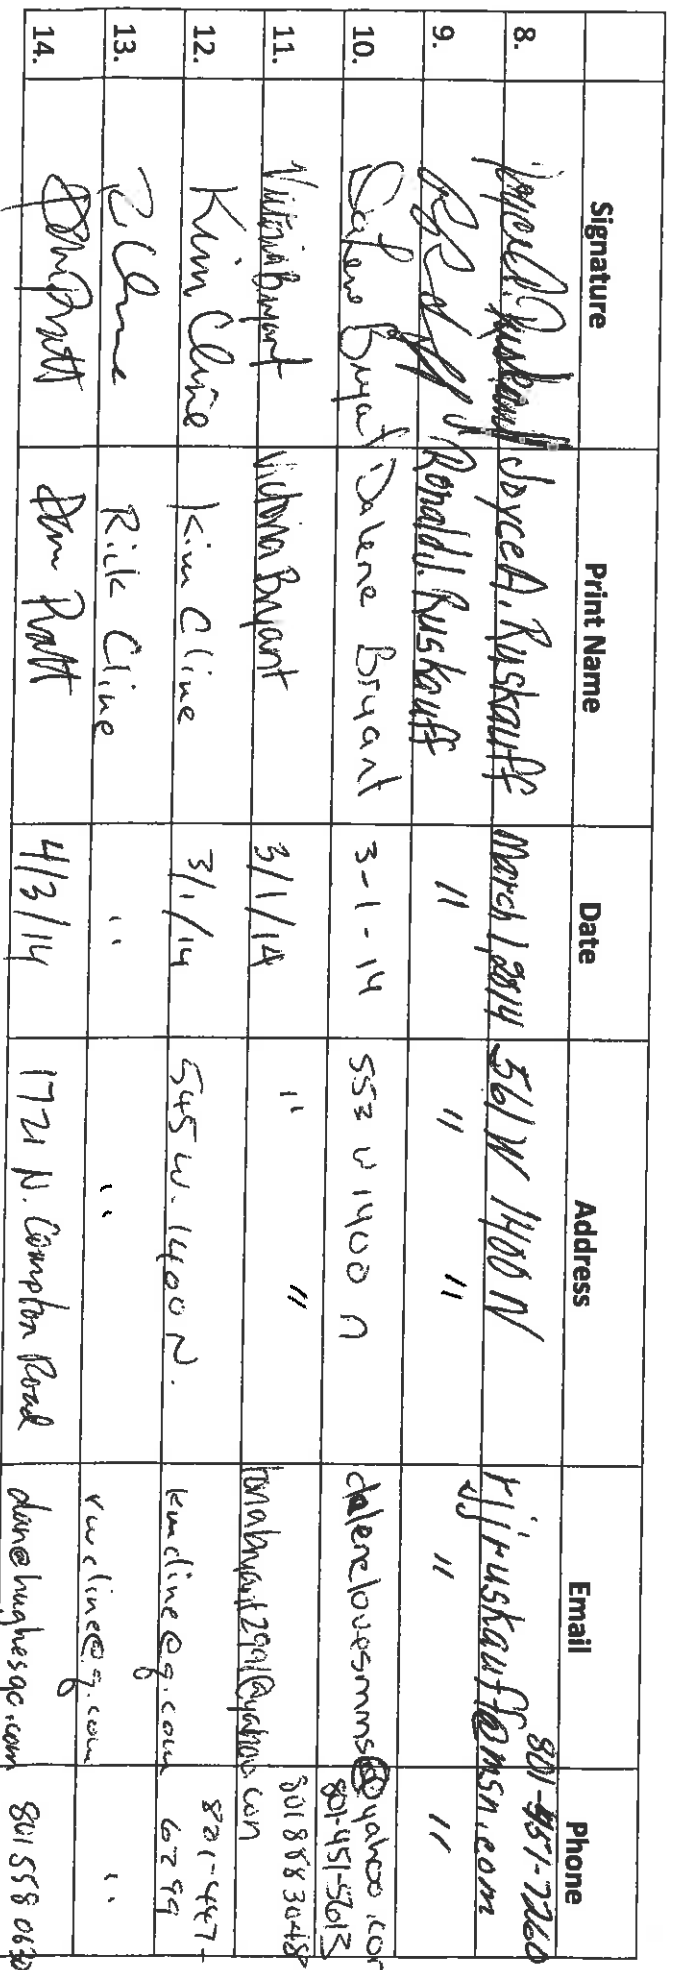 Signature Print Name Date Address Email Phone
8. Joyce A. Ruskauff Joyce A. Ruskauff March 1, 2014 561 W 1400 N rjjruskauff@msn.com 801-451-7260
9. Ronald J. Ruskauff " " " " "
10. Dalene Bryant Dalene Bryant 3-1-14 553 W 1400 n dalenelovesmms@yahoo.com 801-451-5613
11. Victoria Bryant Victoria Bryant 3/1/14 " " 
12. Kim Cline Kim Cline 3/1/14 545 W. 1400 N. kmcline@g.com 801-447-6299
13. R Cline Rick Cline " " rwcline@g.com "
14. Dan Pratt Dan Pratt 4/3/14 1721 N. Compton Road dan@hughesgc.com 801 558 0630